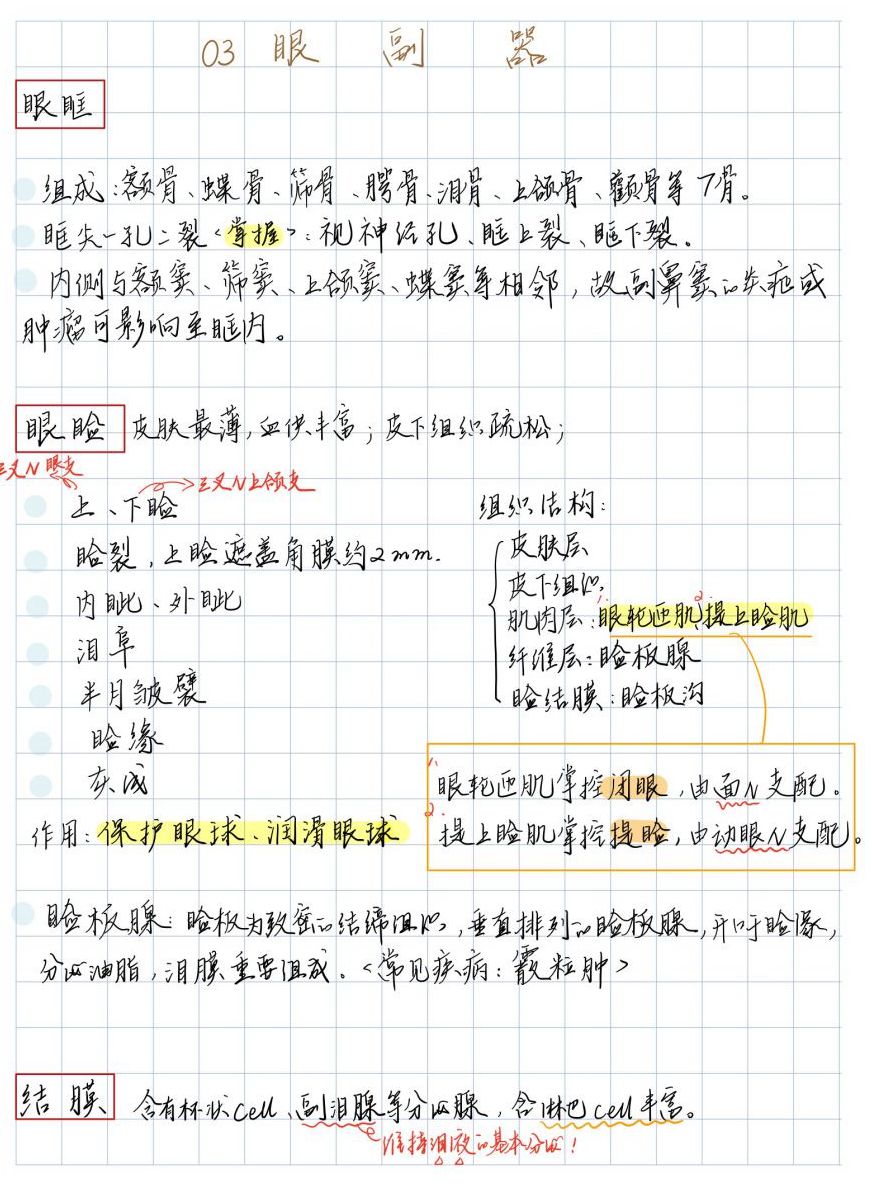 03 眼 副 器
眼眶
组成:额骨、蝶骨、筛骨、腭骨、泪骨、上颌骨、颧骨等7骨。
眶尖一孔二裂<掌握>:视神经孔、眶上裂、眶下裂。
内侧与额窦、筛窦、上颌窦、蝶窦等相邻,故副鼻窦的炎症或
肿瘤可影响至眶内。
眼睑 皮肤最薄,血供丰富;皮下组织疏松;
三叉N眼支
三叉N上颌支
上、下睑
睑裂,上睑遮盖角膜约2mm.
内眦、外眦
泪阜
半月皱襞
睑缘
灰
作用:保护眼球、润滑眼球
组织结构:
皮肤层
皮下组织
肌肉层:1.眼轮匝肌,2.提上睑肌
纤维层:睑板腺
睑结膜:睑板沟
1.眼轮匝肌掌控闭眼,由面N支配。
2.提上睑肌掌控提睑,由动眼N支配。
睑板腺:睑板为致密的结缔组织,垂直排列的睑板腺,开口于睑缘,
分泌油脂,泪膜重要组成。<常见疾病:霰粒肿>
结膜 含有杯状cell、副泪腺等分泌腺,含淋巴cell丰富。
维持泪液的基本分泌!